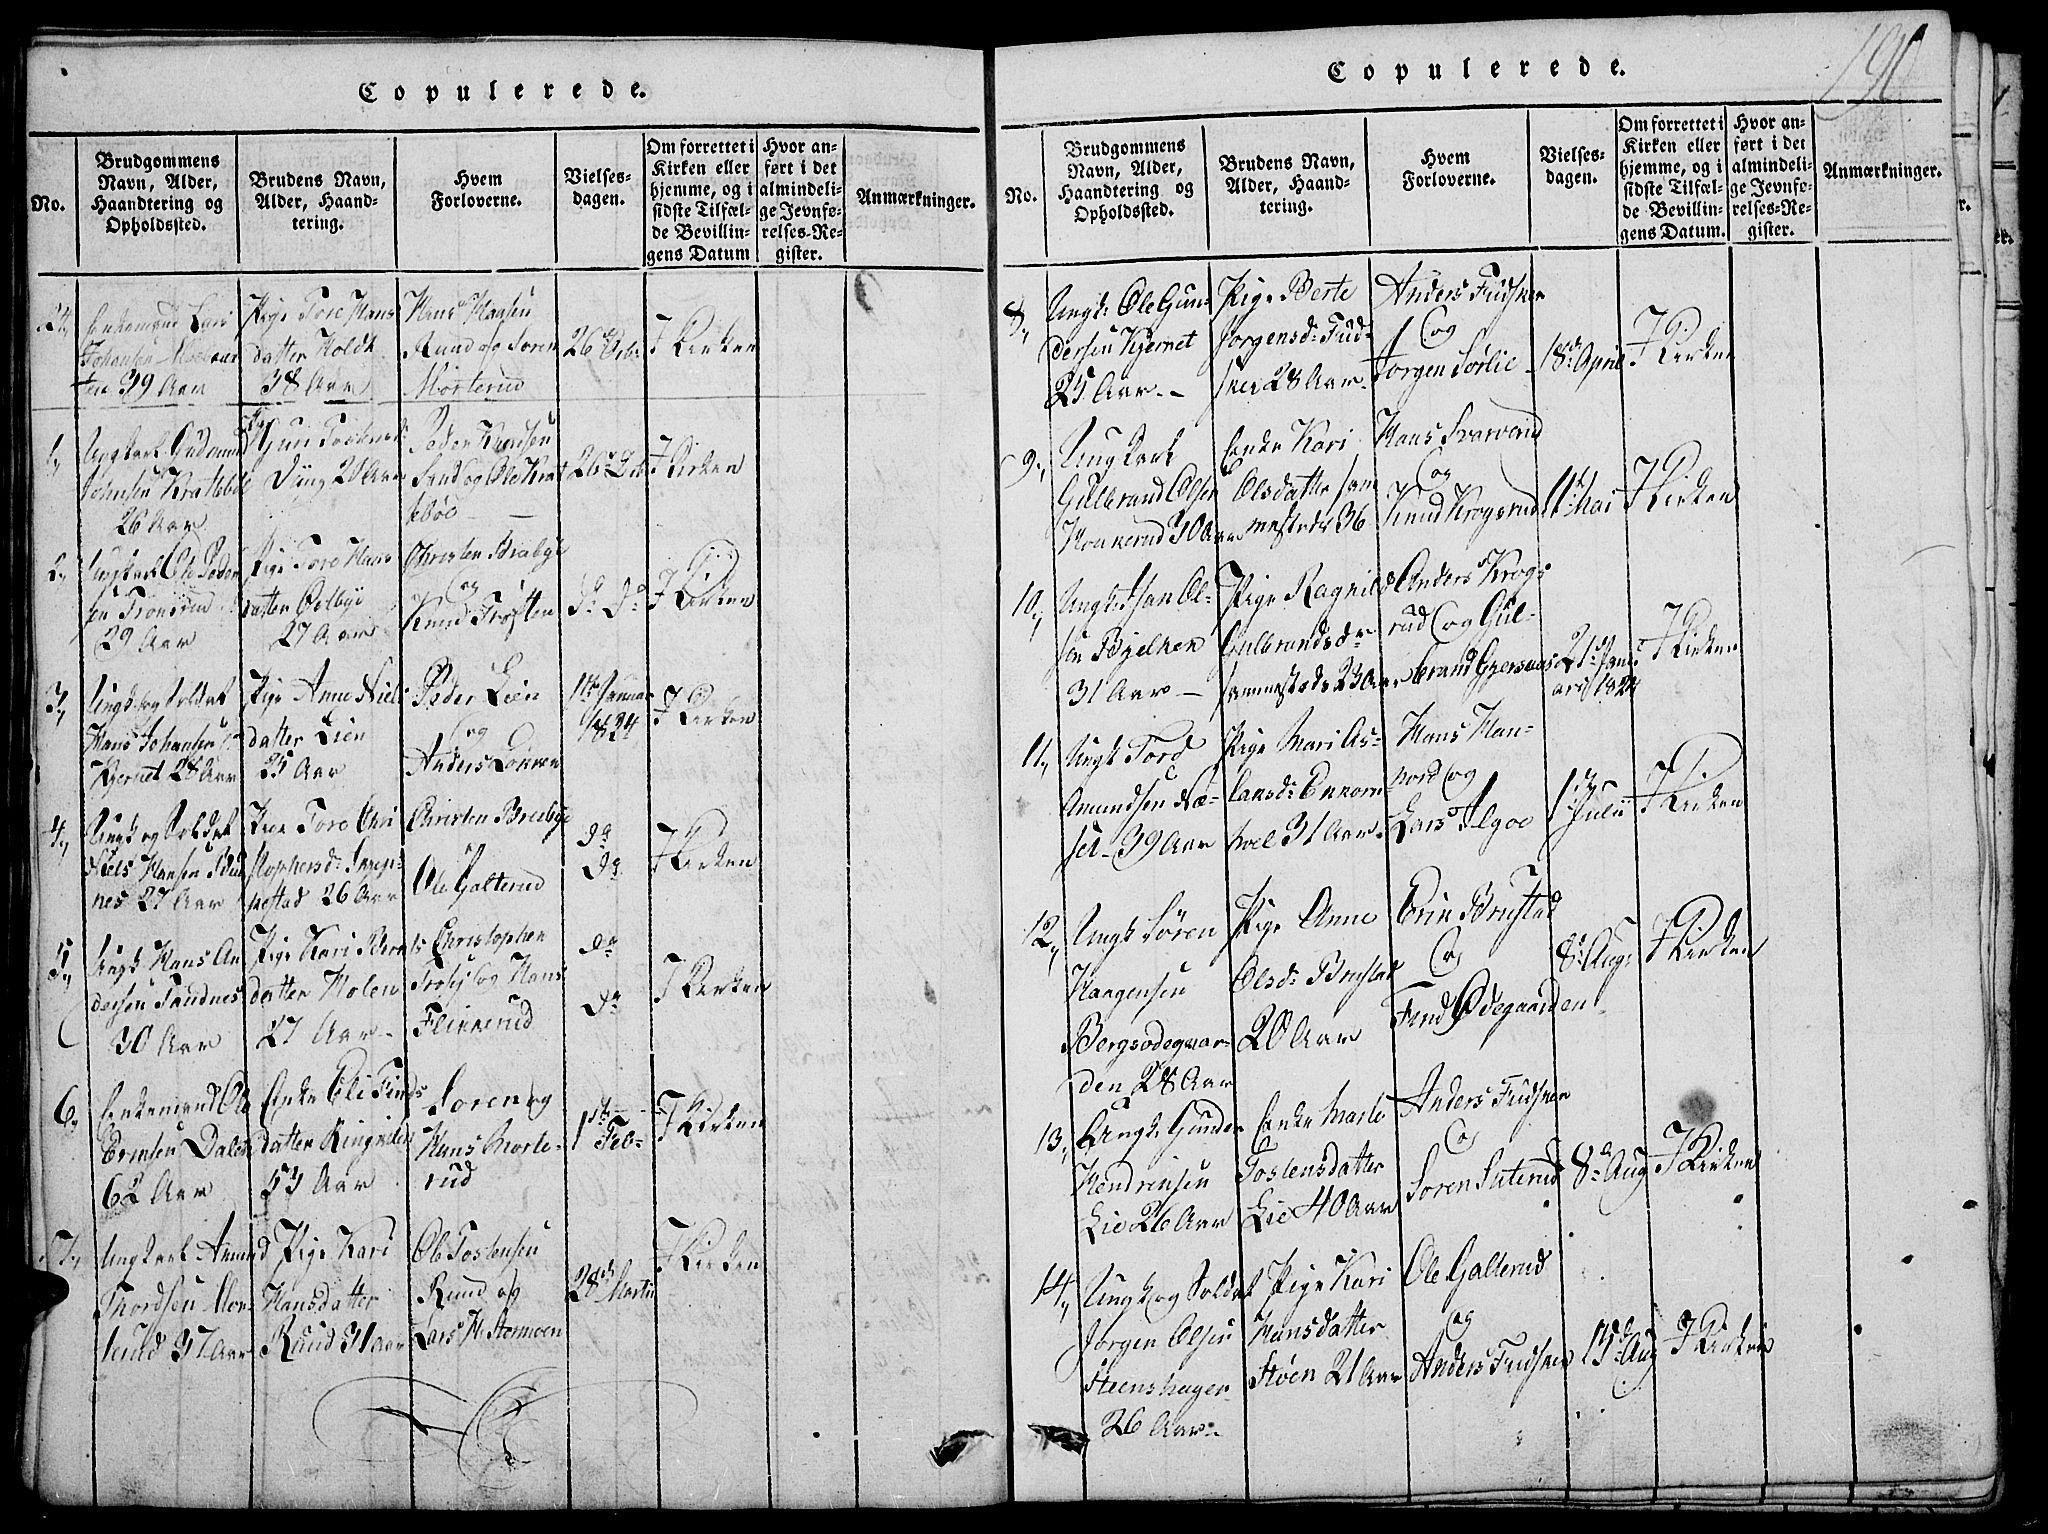 Copulerede.
No.
Brudgommens Navn, Alder, Haandtering og Opholdssted.
Brudens Navn, Alder, Haandtering.
Hvem Forloverne.
Vielsesdagen.
Om forrettet i Kirken eller hjemme, og i sidste Tilfælde Bevillingens Datum
Hvor anført i det almindelige Jevnførelses-Register.
Anmærkninger.
24,
Enkemand Lars
Johansen
39 Aar
Pige Tore Hans
datter Holdt
38 Aar
Hans Hansen
Ruud og Søren
Morterud
26
I Kirken
1,
Ungkarl Gudmund
Johnsen Krattebøe
26 Aar
Peder
Sand og Ole Krat
tebøe
26
I Kirken
2,
Ungkarl Ole Peder
sen
29 Aar
Pige Tore Hans
datter
27 Aar
Christen Braabye
og
Knud
Do Do
I Kirken
3,
Ungk og Soldat
Hans Johansen
Kjernet 28 Aar
Pige Anne Niels
datter Lien
25 Aar
Peder Lien
og
Anders Lokken
1te Januar
1824
I Kirken
4,
Ungk og Soldat
Niels Hansen
nes 27 Aar
Pige Tore Chri
stophersd:
26 Aar
Christen Braabye
og
Ole Galterud
Do
Do
I Kirken
5,
Ungk Hans An
dersen Sandnes
30 Aar
Pige Kari
datter Holen
27 Aar
Christopher
og Hans
Flinkerud
Do
Do
I Kirken
6,
Enkemand Ole
Ericsen Dalen
62 Aar
Enke Eli Finds
datter
53 Aar
Soren og
Hans Morte-
rud
1ste Feb:
I Kirken
7,
Ungkarl Amund
Thordsen
37 Aar
Pige Kari
Hansdatter
Ruud 31 Aar
Ole Tostensen
Ruud og
Lars
28de Martii
I Kirken
Copulerede.
190
No.
Brudgommens Navn, Alder, Haandtering og Opholdssted.
Brudens Navn, Alder, Haandtering.
Hvem Forloverne.
Vielsesdagen.
Om forrettet i Kirken eller hjemme, og i sidste Tilfælde Bevillingens Datum.
Hvor anført i det almindelige Jevnførelses-Register.
Anmærkninger.
8,
Ungk: Ole Gun-
dersen Kjernet
25 Aar -
Pige Berte
Jorgensd: Fuds-
ker 28 Aar
Anders Fudsker
og
Jorgen Sørlie
18de April
I Kirken
9,
Ungkarl
Gulbrand Olsen
30 Aar
Enke Kari
Olsdatter sam
mesteds 36
Hans
og
Knud Krogsrud
I Kirken
10,
Ungk: Jhan Ol-
sen Bjelken
31 Aar -
Pige Ragnild
Gulbrandsd:
sammesteds 23 Aar
Anders Krogs
rud og Gul-
brand
21de Janu
arii 1824
I Kirken
11,
Ungk Tord
Amundsen Næ-
set 39 Aar
Pige Mari As-
lansd:
31 Aar
Hans Han-
og
Lars
1ste Julii
I Kirken
12,
Ungk Søren
Haagensen
Bergsødegaar-
den 28 Aar
Pige Anne
Olsd: Brustad
20 Aar
Eric Brustad
og
Find Ødegaarden
8de Aug:
I Kirken
13,
Ungk: Gunder
Hendricsen
Lie 26 Aar
Enke Marte
Tostensdatter
Lie 40 Aar
Anders Fudsker
og
Soren
8de Aug
I Kirken
14,
Ungk og Soldat
Jorgen Olsen
Steenshagen
26 Aar
Pige Kari
Hansdatter
Støen 21 Aar
Ole Galterud
og
Anders Fudsker
15de Aug
I Kirken